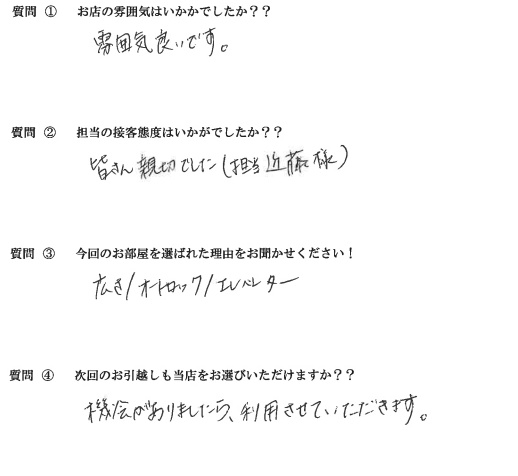 質問 ① お店の雰囲気はいかかでしたか？？
雰囲気良いです。
質問 ② 担当の接客態度はいかがでしたか？？
皆さん親切でした(担当近藤様)
質問 ③ 今回のお部屋を選ばれた理由をお聞かせください！
広さ/オートロック/エレベーター
質問 ④ 次回のお引越しも当店をお選びいただけますか？？
機会がありましたら、利用させていただきます。